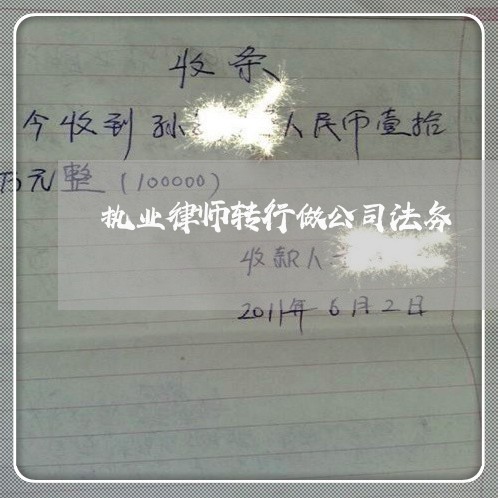 收条
今收到孙 人民币壹拾
万元整(100000)
执业律师转行做公司法务
收款人
2011年6月2日